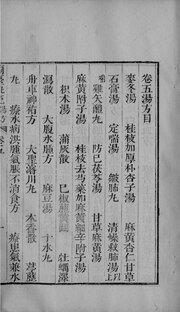 卷五湯方目
麥冬湯　桂枝加厚朴杏子湯　麻黃杏仁甘草
石膏湯　定喘湯　皺肺丸　清燥救肺湯
雞矢醴　防己茯苓湯　甘草麻黃湯
麻黃附子湯　桂枝去芍藥加麻黃細辛附子湯
枳朮湯　蒲灰散　己椒藶黃丸　牡蠣澤
瀉散　大腹水腫方　麻豆湯　十水丸
舟車神祐方　大聖濬川丸　木香散
丸　療水病洪腫氣脹不消食方　療患氣兼水